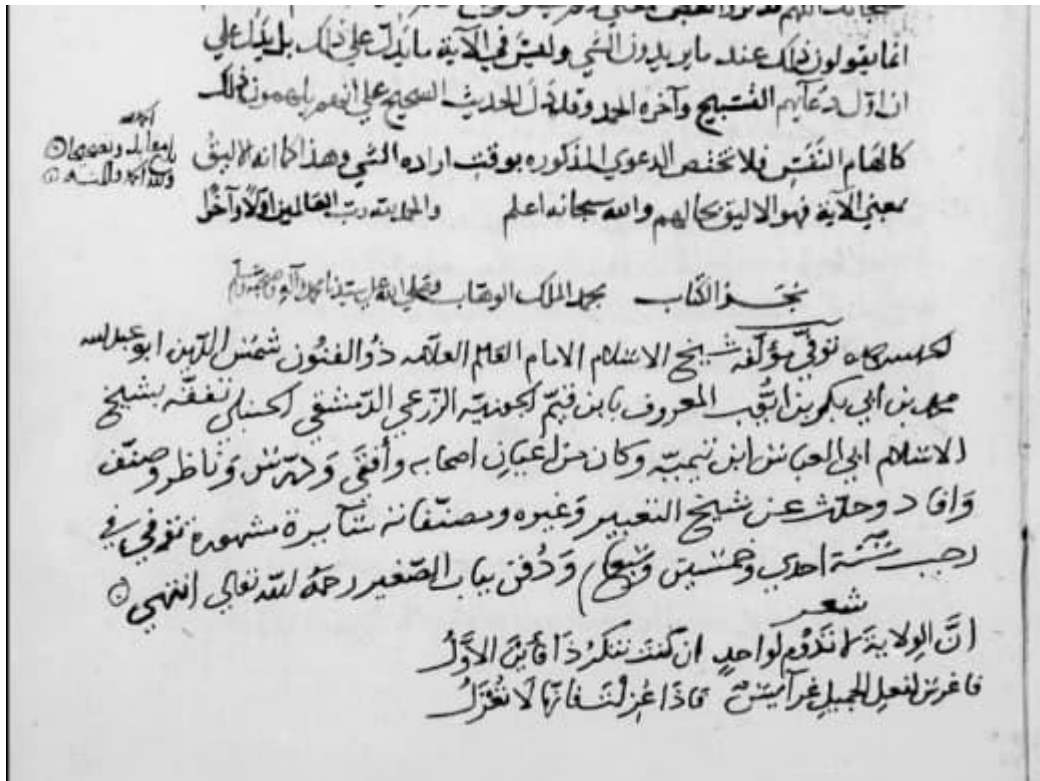 سبحانك اللهم
انما يقولون ذلك عند ما يريدون الشي وليس في الآية ما يدل علي ذلك بل يدل علي
ان اول دعآيهم التسبيح وآخره الحمد وقد دل الحديث الصحيح علي انهم يلهمون ذلك
كالهام النفس فلا تختص الدعوي المذكوره بوقت اراده الشي وهذا كما انه لا يليق
بمعني الآية فهو الاليق بحالهم والله سبحانه اعلم والحمد لله رب العالمين اولا وآخرا
بلغ مقابلة
ولله الحمد والمنه
نجز الكتاب بحمد الملك الوهاب وصلي الله علي سيدنا محمد وآله وصحبه وسلم
توفي مؤلفه شيخ الاسلام الامام العالم العلامه ذو الفنون شمس الدين ابو عبد الله
محمد بن أبي بكر بن ايوب المعروف بابن قيم الجوزيه الزرعي الدمشقي الحنبلي تفقه بشيخ
الاسلام ابي العباس ابن تيميه وكان من اعيان اصحابه وأفتى ودرس وناظر وصنف
وافاد وحدث عن شيخ التعبير وغيره ومصنفاته سآيرة مشهورة توفي في
رجب سنة احدي وخمسين وسبعماية ودفن بباب الصغير رحمه الله تعالي انتهي
شعر
ان الولاية لا تدوم لواحد ان كنت تنكر ذا فأين الاول
فاغرس لفعل الجميل غرآيس فاذا عزلت فانها لا تعزل